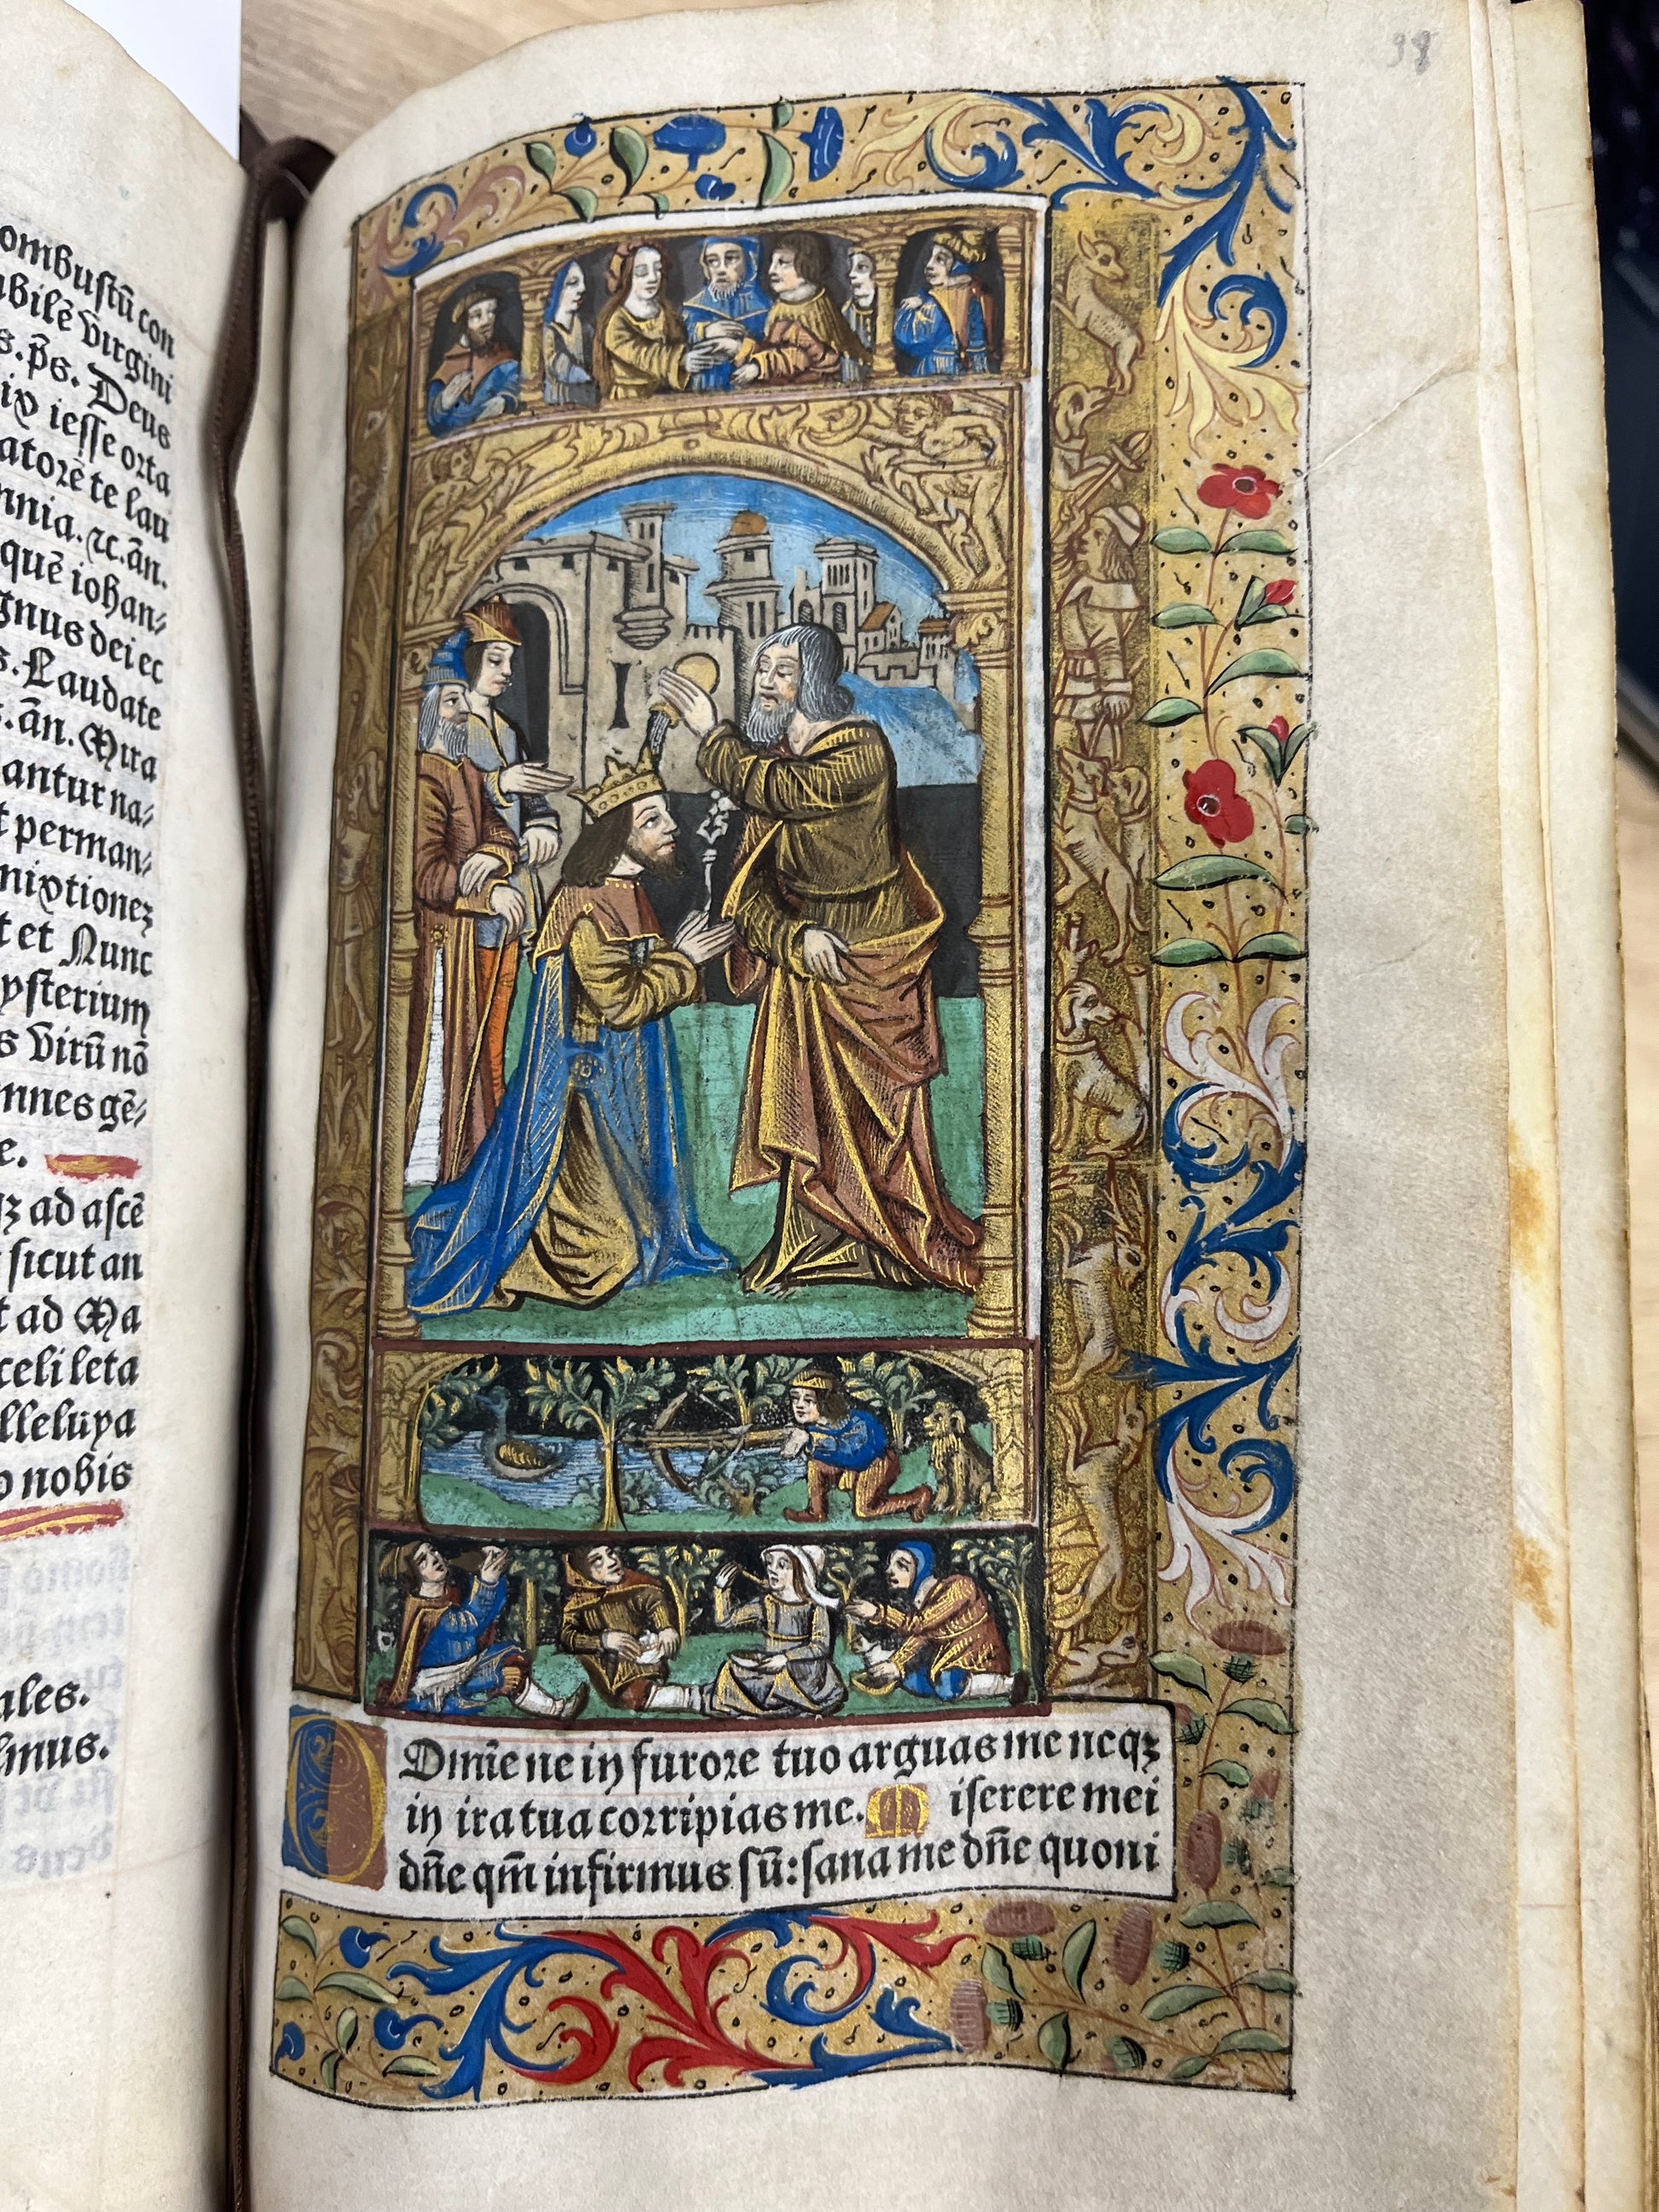 98
ombustū con
abilē virgini
s. p̄s. Deus
ix iesse orta
atorē te lau
nnia. ⁊c. ān.
quē iohan⸗
gnus dei ec
s. Laudate
. ān. Mira
antur na⸗
t perman⸗
nixtionez
t et Nunc
ysterium
s virū nō
mnes gē⸗
e.
sz ad ascē
sicut an
t ad Ma
celi leta
lleluya
o nobis
ales.
lmus.
Dm̄ie ne in furore tuo arguas me neqz
in ira tua corripias me. Miserere mei
dn̄e qm̄ infirmus sū: sana me dn̄e quoni